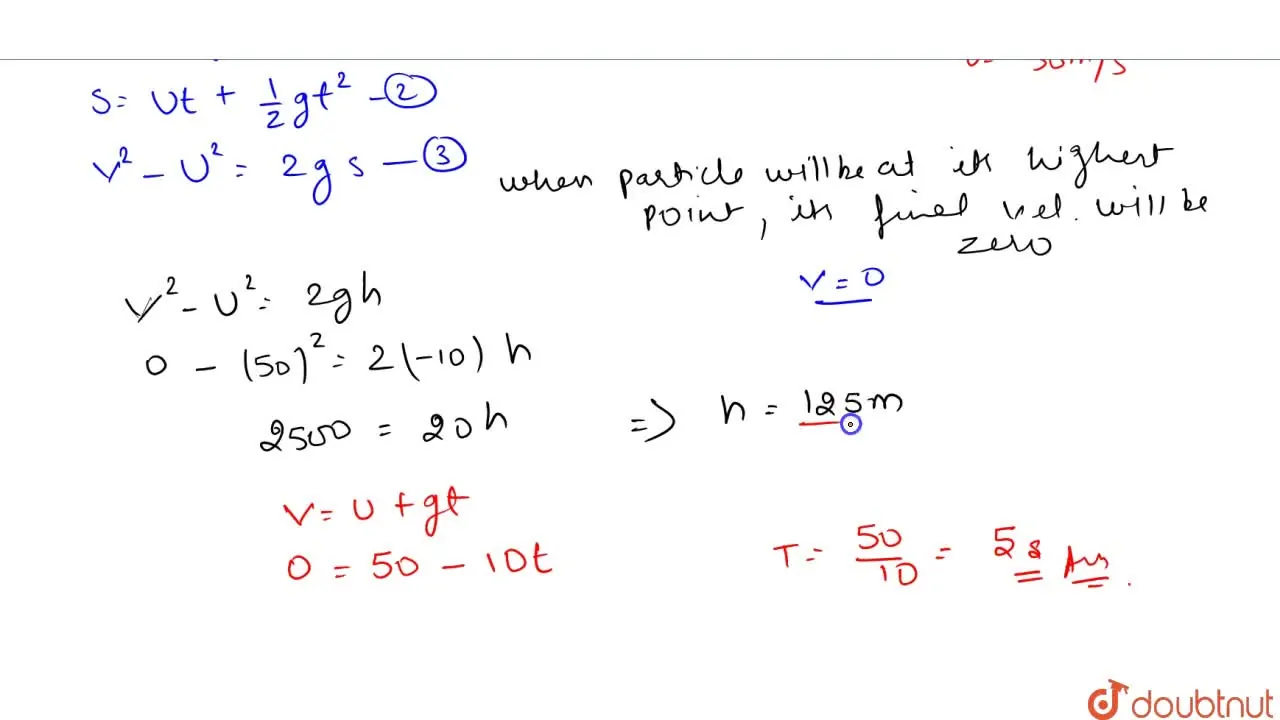 S = Ut + 1/2 gt² - ②
V² - U² = 2gs - ③
when particle will be at its highest
point, its final vel. will be
zero
V = 0
V² - U² = 2gh
0 - (50)² = 2(-10) h
2500 = 20h => h = 125m
V = U + gt
0 = 50 - 10t
T = 50/10 = 5s Ans.
doubtnut